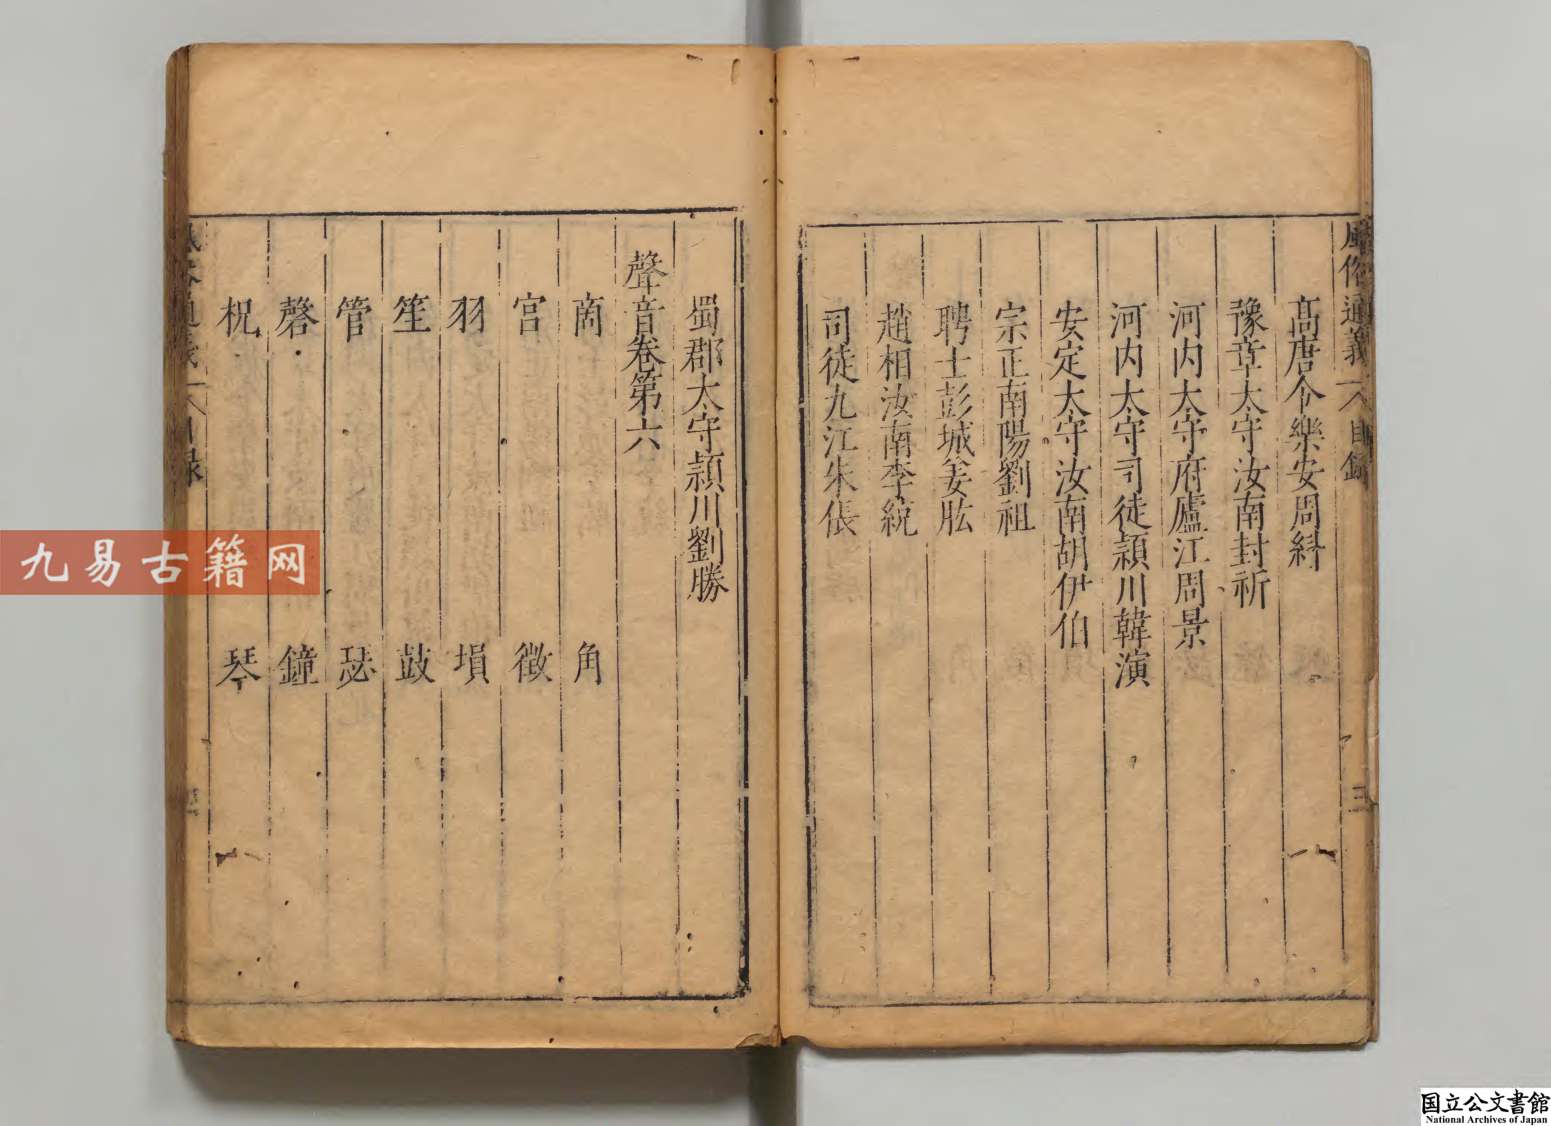 風俗通義 目錄
三
髙唐令樂安周糾
豫章太守汝南封祈
河内太守府廬江周景
河内太守司徒潁川韓演
安定太守汝南胡伊伯
宗正南陽劉祖
聘士彭城姜肱
趙相汝南李統
司徒九江朱倀
蜀郡太守潁川劉勝
聲音卷第六
商 角
宮 徵
羽 塤
笙 鼓
管 瑟
磬 鐘
柷 琴
九易古籍网
国立公文書館
National Archives of Japan